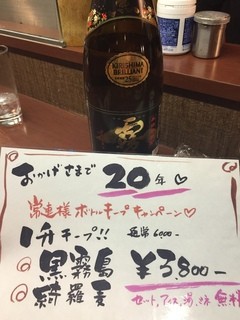 KIRISHIMA
BRILLIANT
おかげさまで 20年♡
常連様ボトルキープキャンペーン♡
1升キープ!! 通常6,000-
◎黒霧島 ¥3,800-
◎綺羅麦
セット、アイス、湯、水 無料